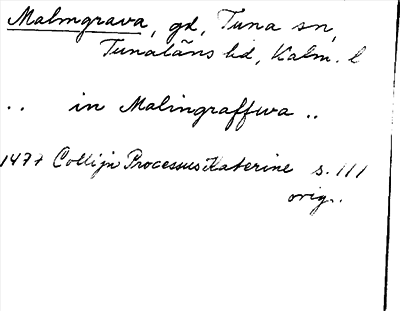 Malmgrava, gd, Tuna sn,
Tunaläns hd, Kalm. l
.. in Malingraffwa ..
1477 Collijn Processus Katerine s. 111
orig.